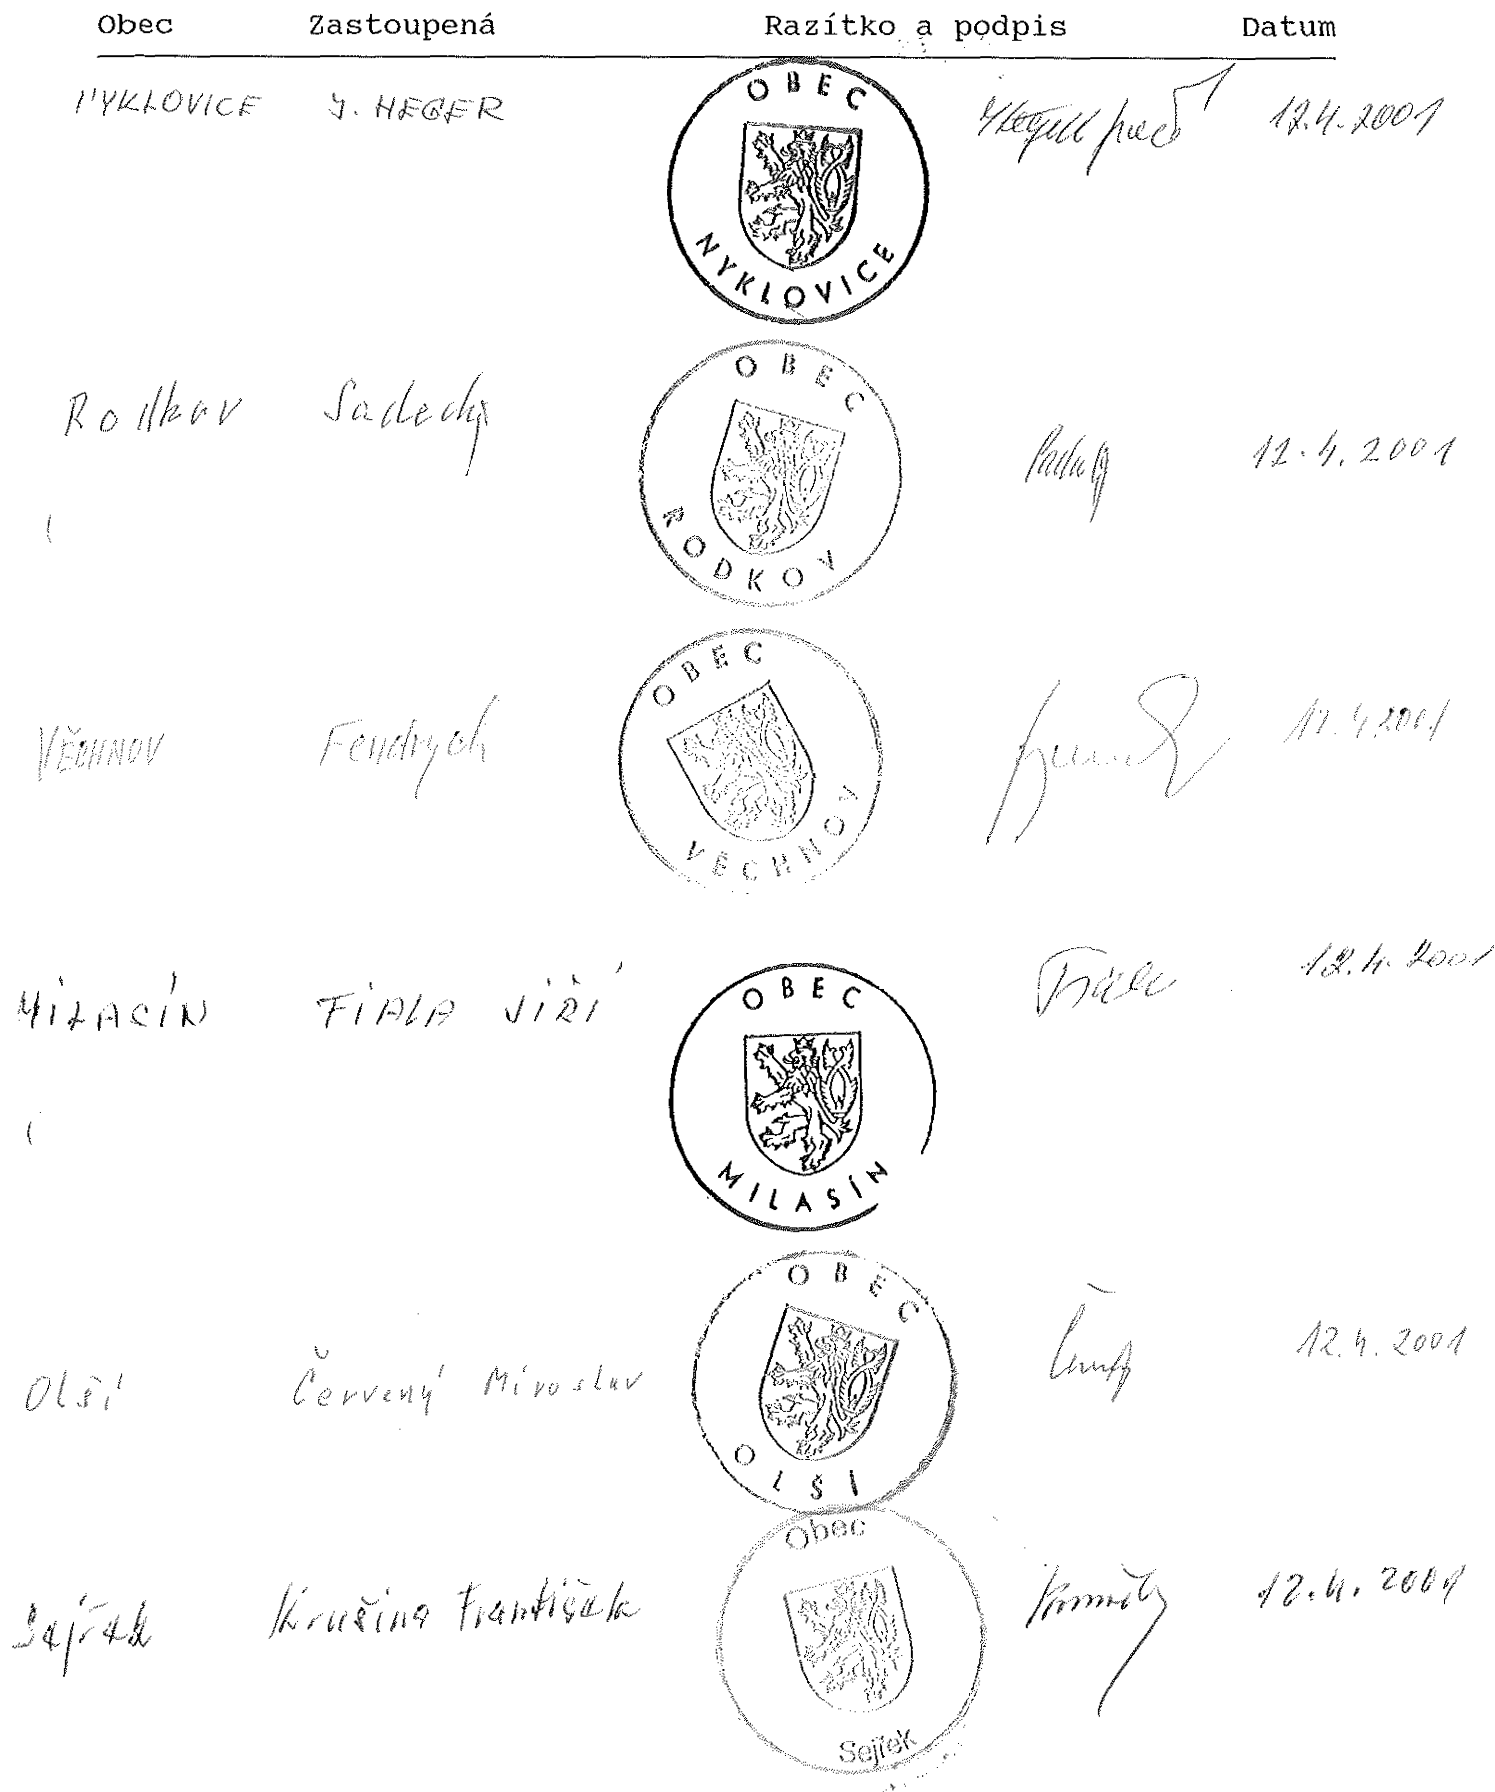 Obec Zastoupená Razítko a podpis Datum
NYKLOVICE J. HEGER OBEC NYKLOVICE 12.4.2001
Rodkov Sadecký OBEC RODKOV 12.4.2001
VĚCHNOV Fendrych OBEC VĚCHNOV 12.4.2001
MILASÍN FIALA JIŘÍ OBEC MILASÍN Fiala 12.4.2001
Olší Červený Miroslav OBEC OLŠÍ 12.4.2001
Sejřek Krušina František Obec Sejřek 12.4.2001